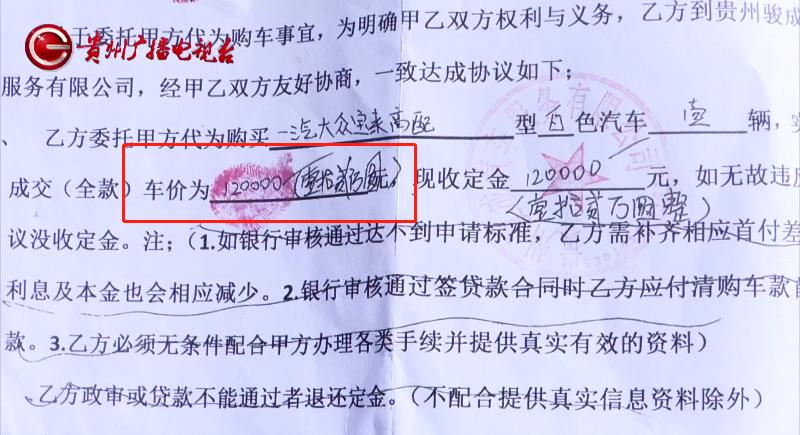 贵州广播电视台
于委托甲方代为购车事宜，为明确甲乙双方权利与义务，乙方到贵州骏成
服务有限公司，经甲乙双方友好协商，一致达成协议如下；
、 乙方委托甲方代为购买一汽大众宝来高配型白色汽车壹辆，实
成交（全款）车价为120000（壹拾贰万圆元）现收定金120000元，如无故违
（壹拾贰万圆整）
议没收定金。注；（1.如银行审核通过达不到申请标准，乙方需补齐相应首付差
利息及本金也会相应减少。2.银行审核通过签贷款合同时乙方应付清购车款首
款。3.乙方必须无条件配合甲方办理各类手续并提供真实有效的资料）
乙方政审或贷款不能通过者退还定金。（不配合提供真实信息资料除外）